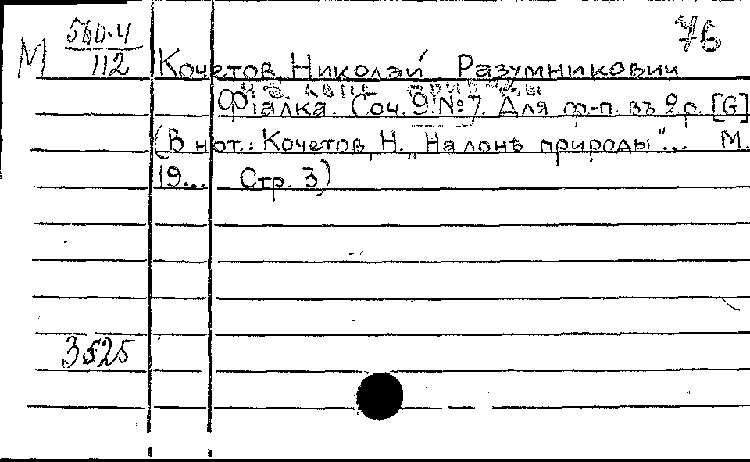 76
М 560.4
112
Кочетов, Николай Разумникович
На лоне природы
Фіалка. Соч. 9 № 7. Для ф-п. въ 2 р. [G]
(В нот.: Кочетов, Н. „На лонѣ природы“... М.
19... Стр. 3)
3525